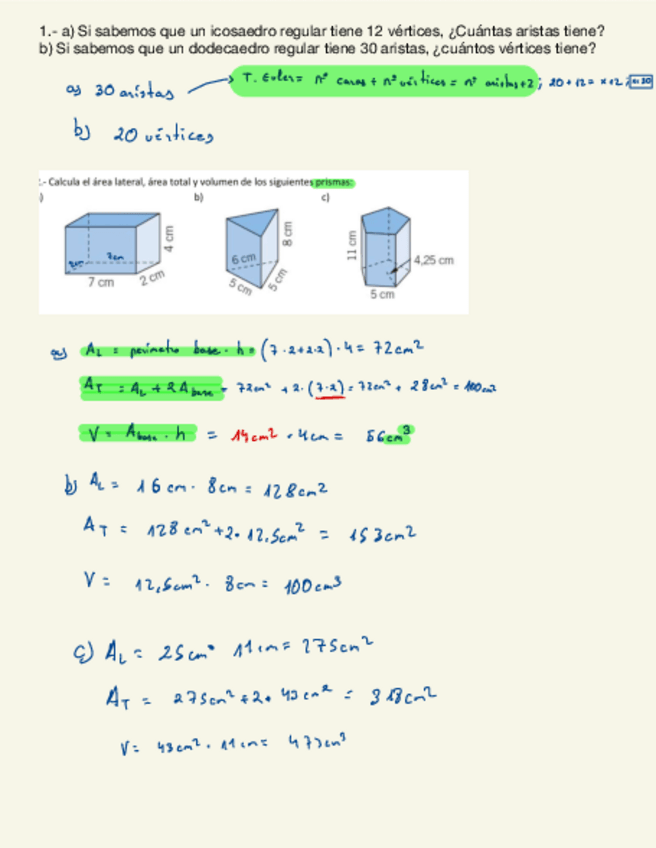 1.- a) Si sabemos que un icosaedro regular tiene 12 vértices, ¿Cuántas aristas tiene?
b) Si sabemos que un dodecaedro regular tiene 30 aristas, ¿cuántos vértices tiene?
a) 30 aristas → T. Euler = nº caras + nº vértices = nº aristas + 2; 20 + 12 = x + 2;
b) 20 vértices
.- Calcula el área lateral, área total y volumen de los siguientes prismas:
) b) c)
4 cm 7 cm 2 cm 7cm 2cm
8 cm 6 cm 5 cm 5 cm
11 cm 4,25 cm 5 cm
a) AL = perímetro base · h = (7·2+2·2)·4 = 72cm²
AT = AL + 2Abase = 72cm² + 2·(7·2) = 72cm² + 28cm² = 100cm²
V = Abase · h = 14cm² · 4cm = 56cm³
b) AL = 16cm · 8cm = 128cm²
AT = 128cm² + 2· 12,5cm² = 153cm²
V = 12,5cm² · 8cm = 100cm³
c) AL = 25cm · 11cm = 275cm²
AT = 275cm² + 2· 43cm² = 318cm²
V = 43cm² · 11cm = 473cm³